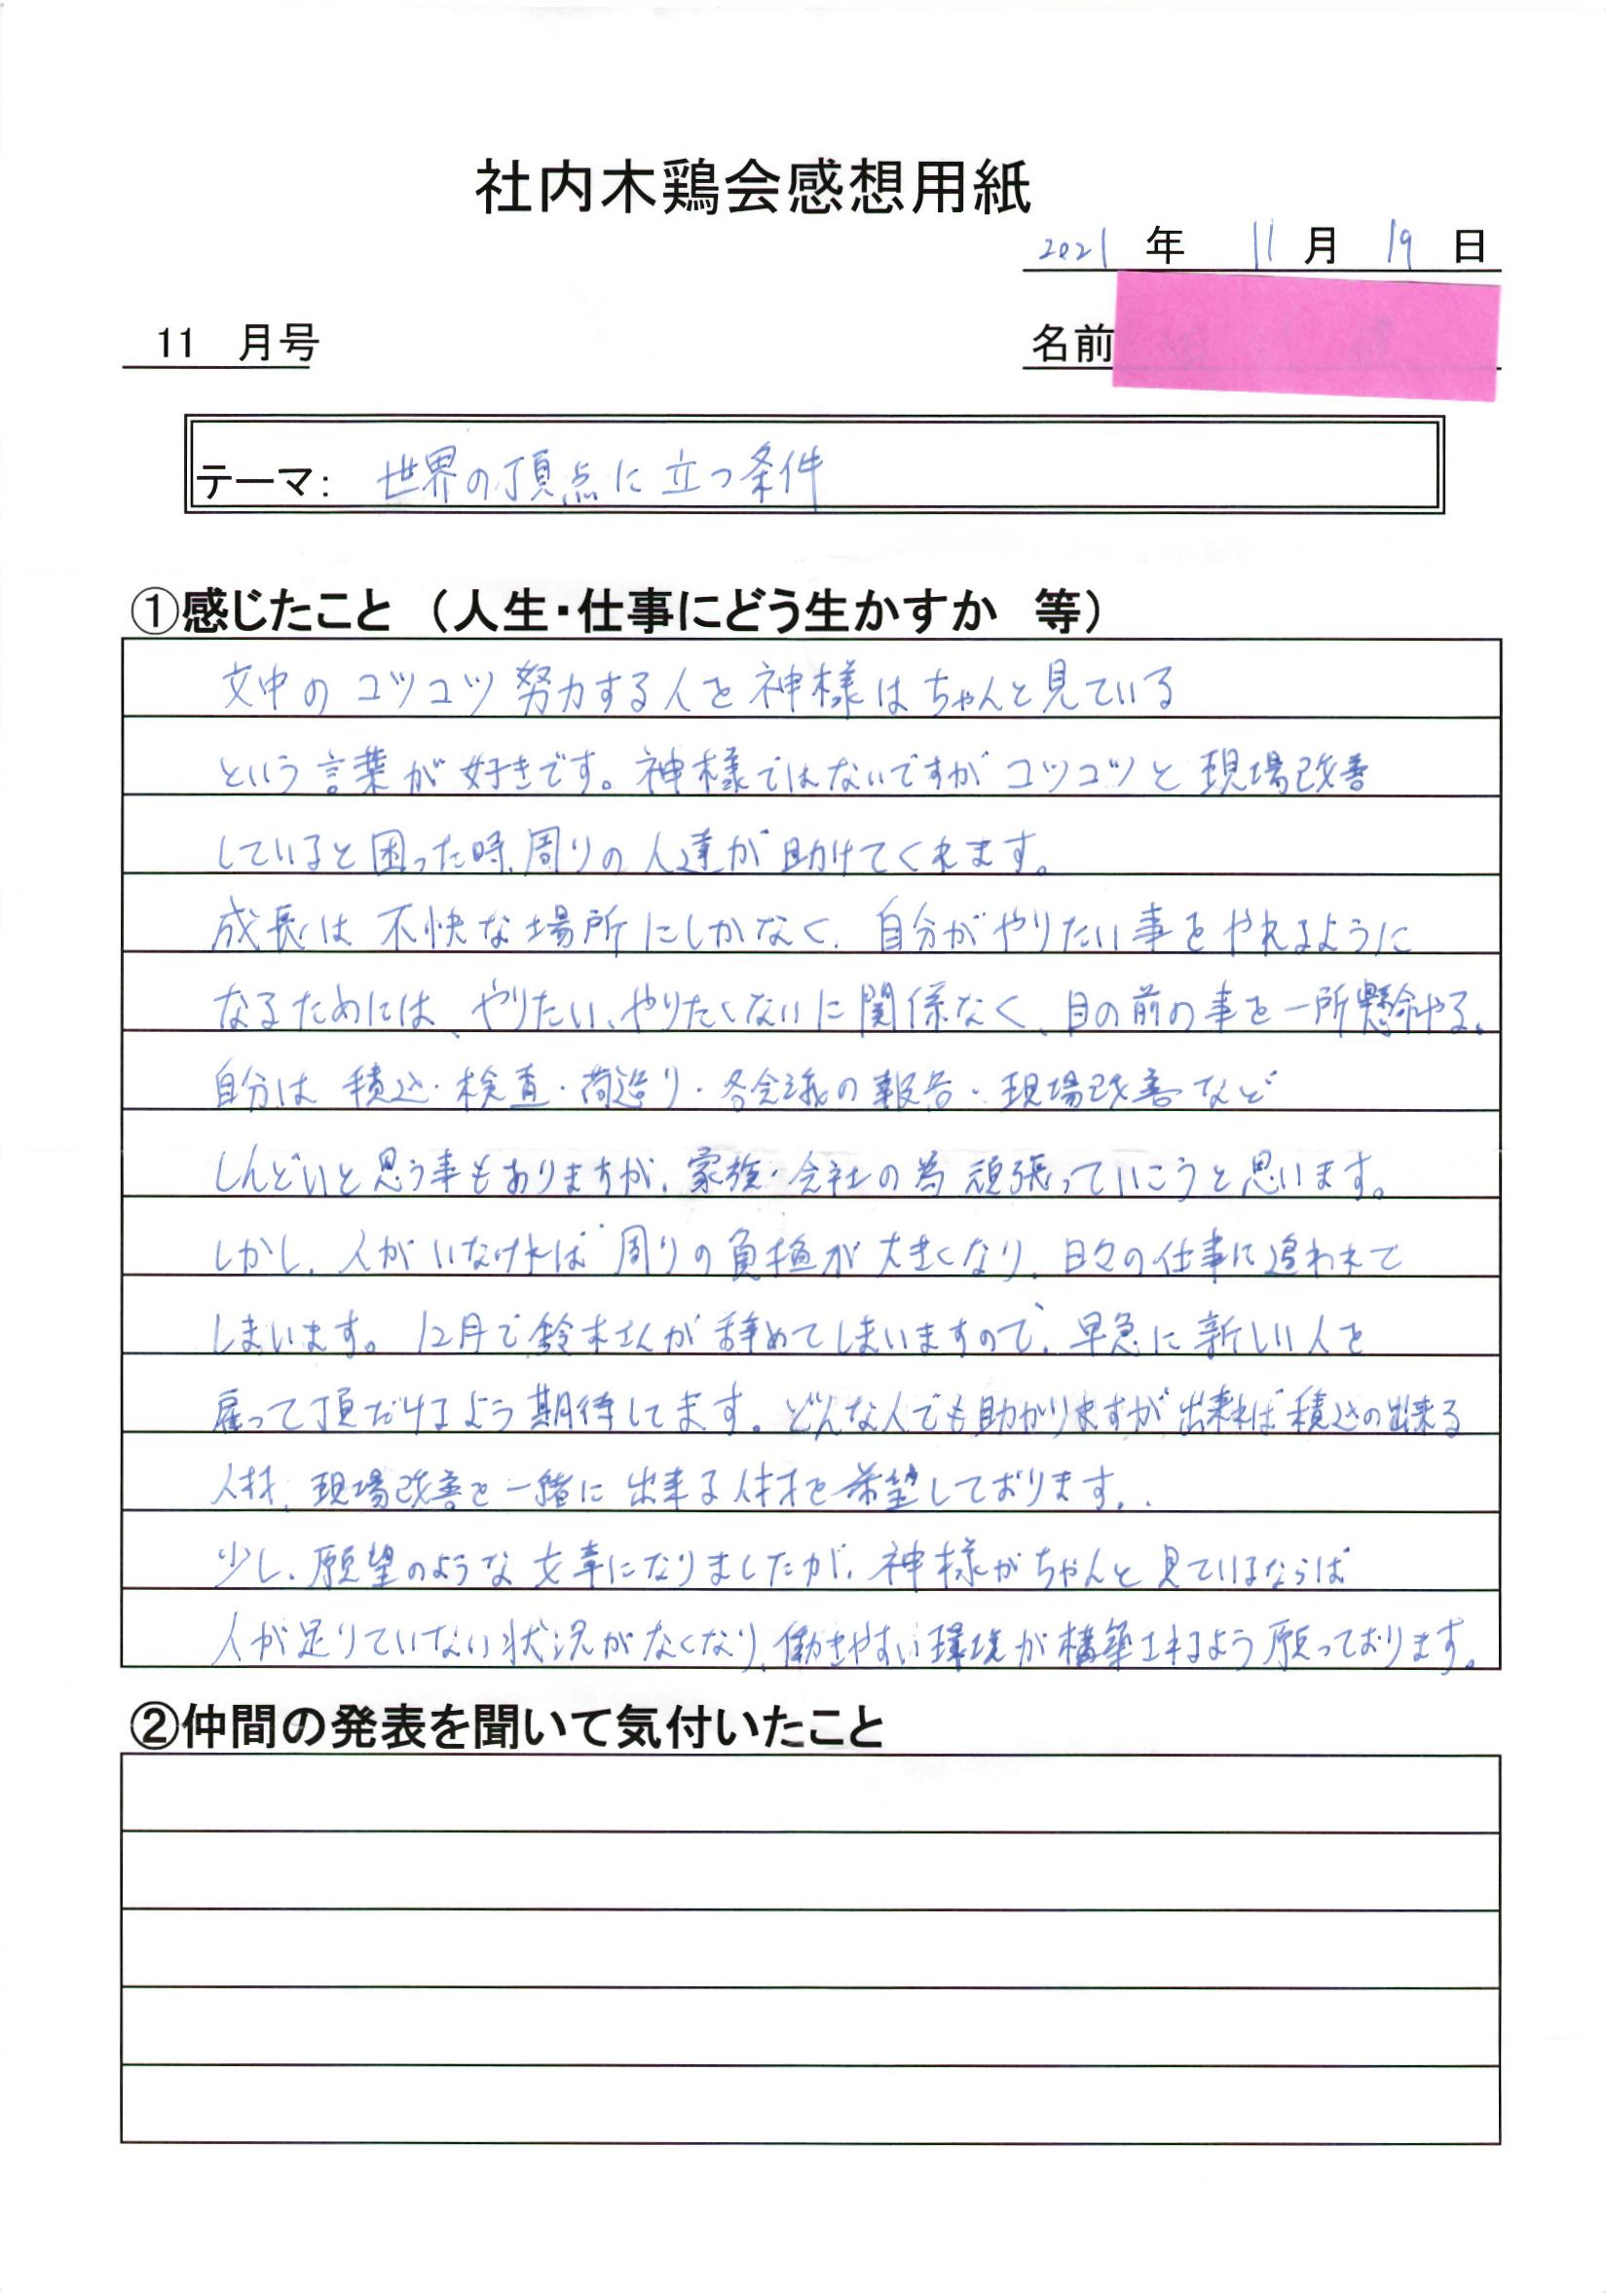 社内木鶏会感想用紙
2021 年 11 月 19 日
11 月号
名前
テーマ: 世界の頂点に立つ条件
①感じたこと（人生・仕事にどう生かすか 等）
文中のコツコツ努力する人を神様はちゃんと見ている
という言葉が好きです。神様ではないですがコツコツと現場改善
していると困った時、周りの人達が助けてくれます。
成長は不快な場所にしかなく、自分がやりたい事をやれるように
なるためには、やりたい、やりたくないに関係なく、目の前の事を一所懸命やる。
自分は積込・検査・荷造り・各会議の報告・現場改善など
しんどいと思う事もありますが、家族・会社の為頑張っていこうと思います。
しかし、人がいなければ周りの負担が大きくなり、日々の仕事に追われて
しまいます。12月で鈴木さんが辞めてしまいますので、早急に新しい人を
雇って頂だけるよう期待してます。どんな人でも助かりますが出来れば積込の出来る
人材、現場改善を一緒に出来る人材を希望しております。
少し、願望のような文章になりましたが、神様がちゃんと見ているならば
人が足りていない状況がなくなり、働きやすい環境が構築されるよう願っております。
②仲間の発表を聞いて気付いたこと